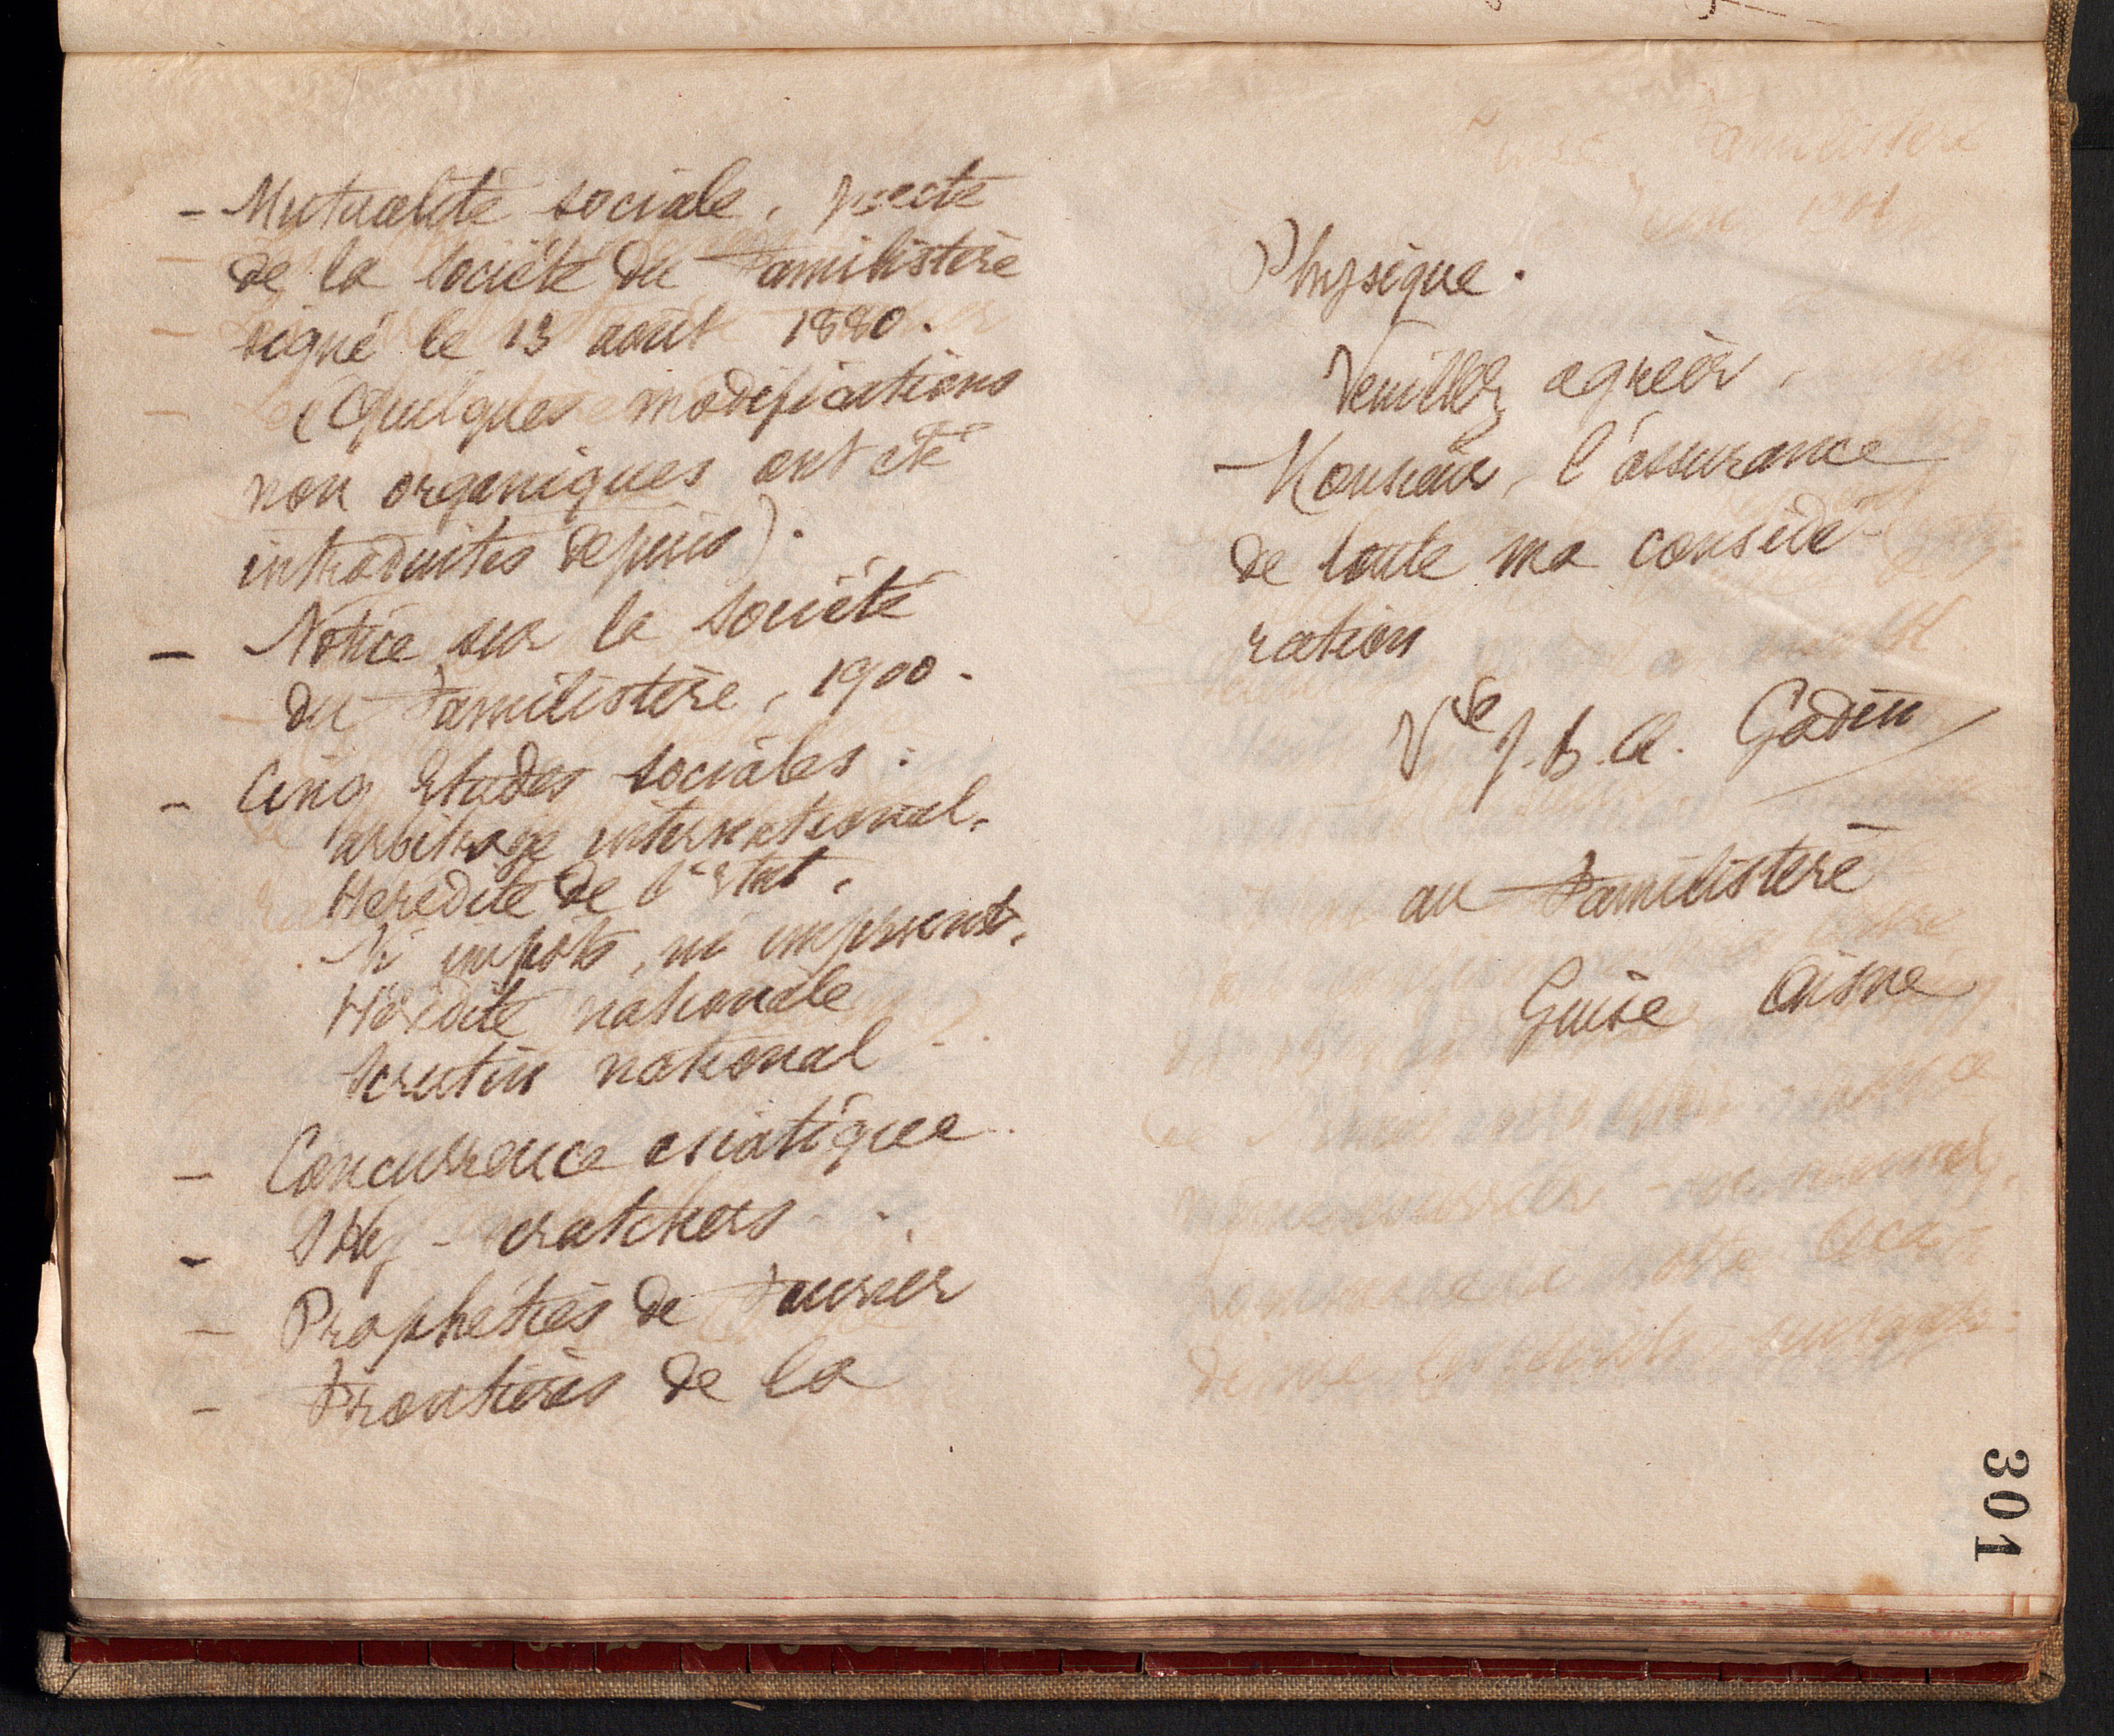 - Mutualité sociale, pacte
de la Société du Familistère
signé le 13 août 1880.
(Quelques modifications
non organiques ont été
introduites depuis).
- Notice sur la Société
du Familistère, 1900.
- Cinq Etudes sociales :
arbitrage international.
Hérédité de l'Etat.
Ni impôts, ni emprunts.
Hérédité nationale
Scrutin national
- Concurrence asiatique
- Sky-cratchers
- Prophéties de Fourier
- Frontières de la
Physique.
Veuillez agréer,
Monsieur, l'assurance
de toute ma considé-
ration
Vve J. B. A. Godin
au Familistère
Guise Aisne
301